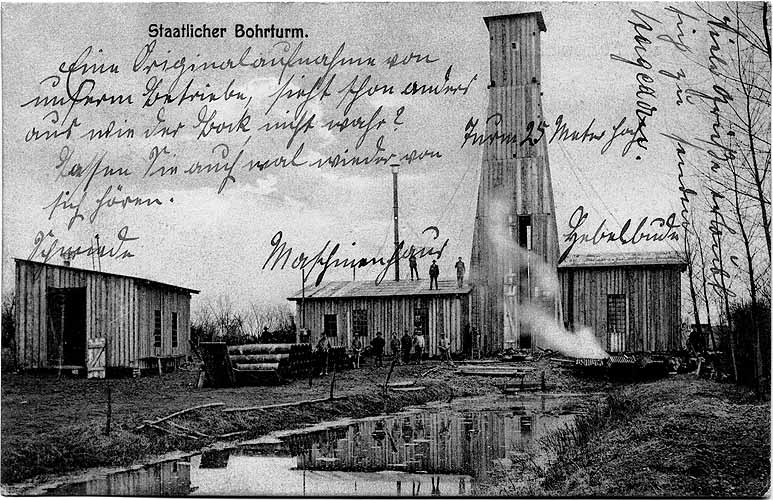 Staatlicher Bohrturm.
Eine Originalaufnahme von
unserm Betriebe, sieht schon anders
aus wie der Bock nicht wahr?
Lassen Sie auch mal wieder von
sich hören.
Turm 25 Meter hoch.
Schmiede
Maschinenhaus
Hebelbude
Viele Grüße erlaubt
sich zu senden